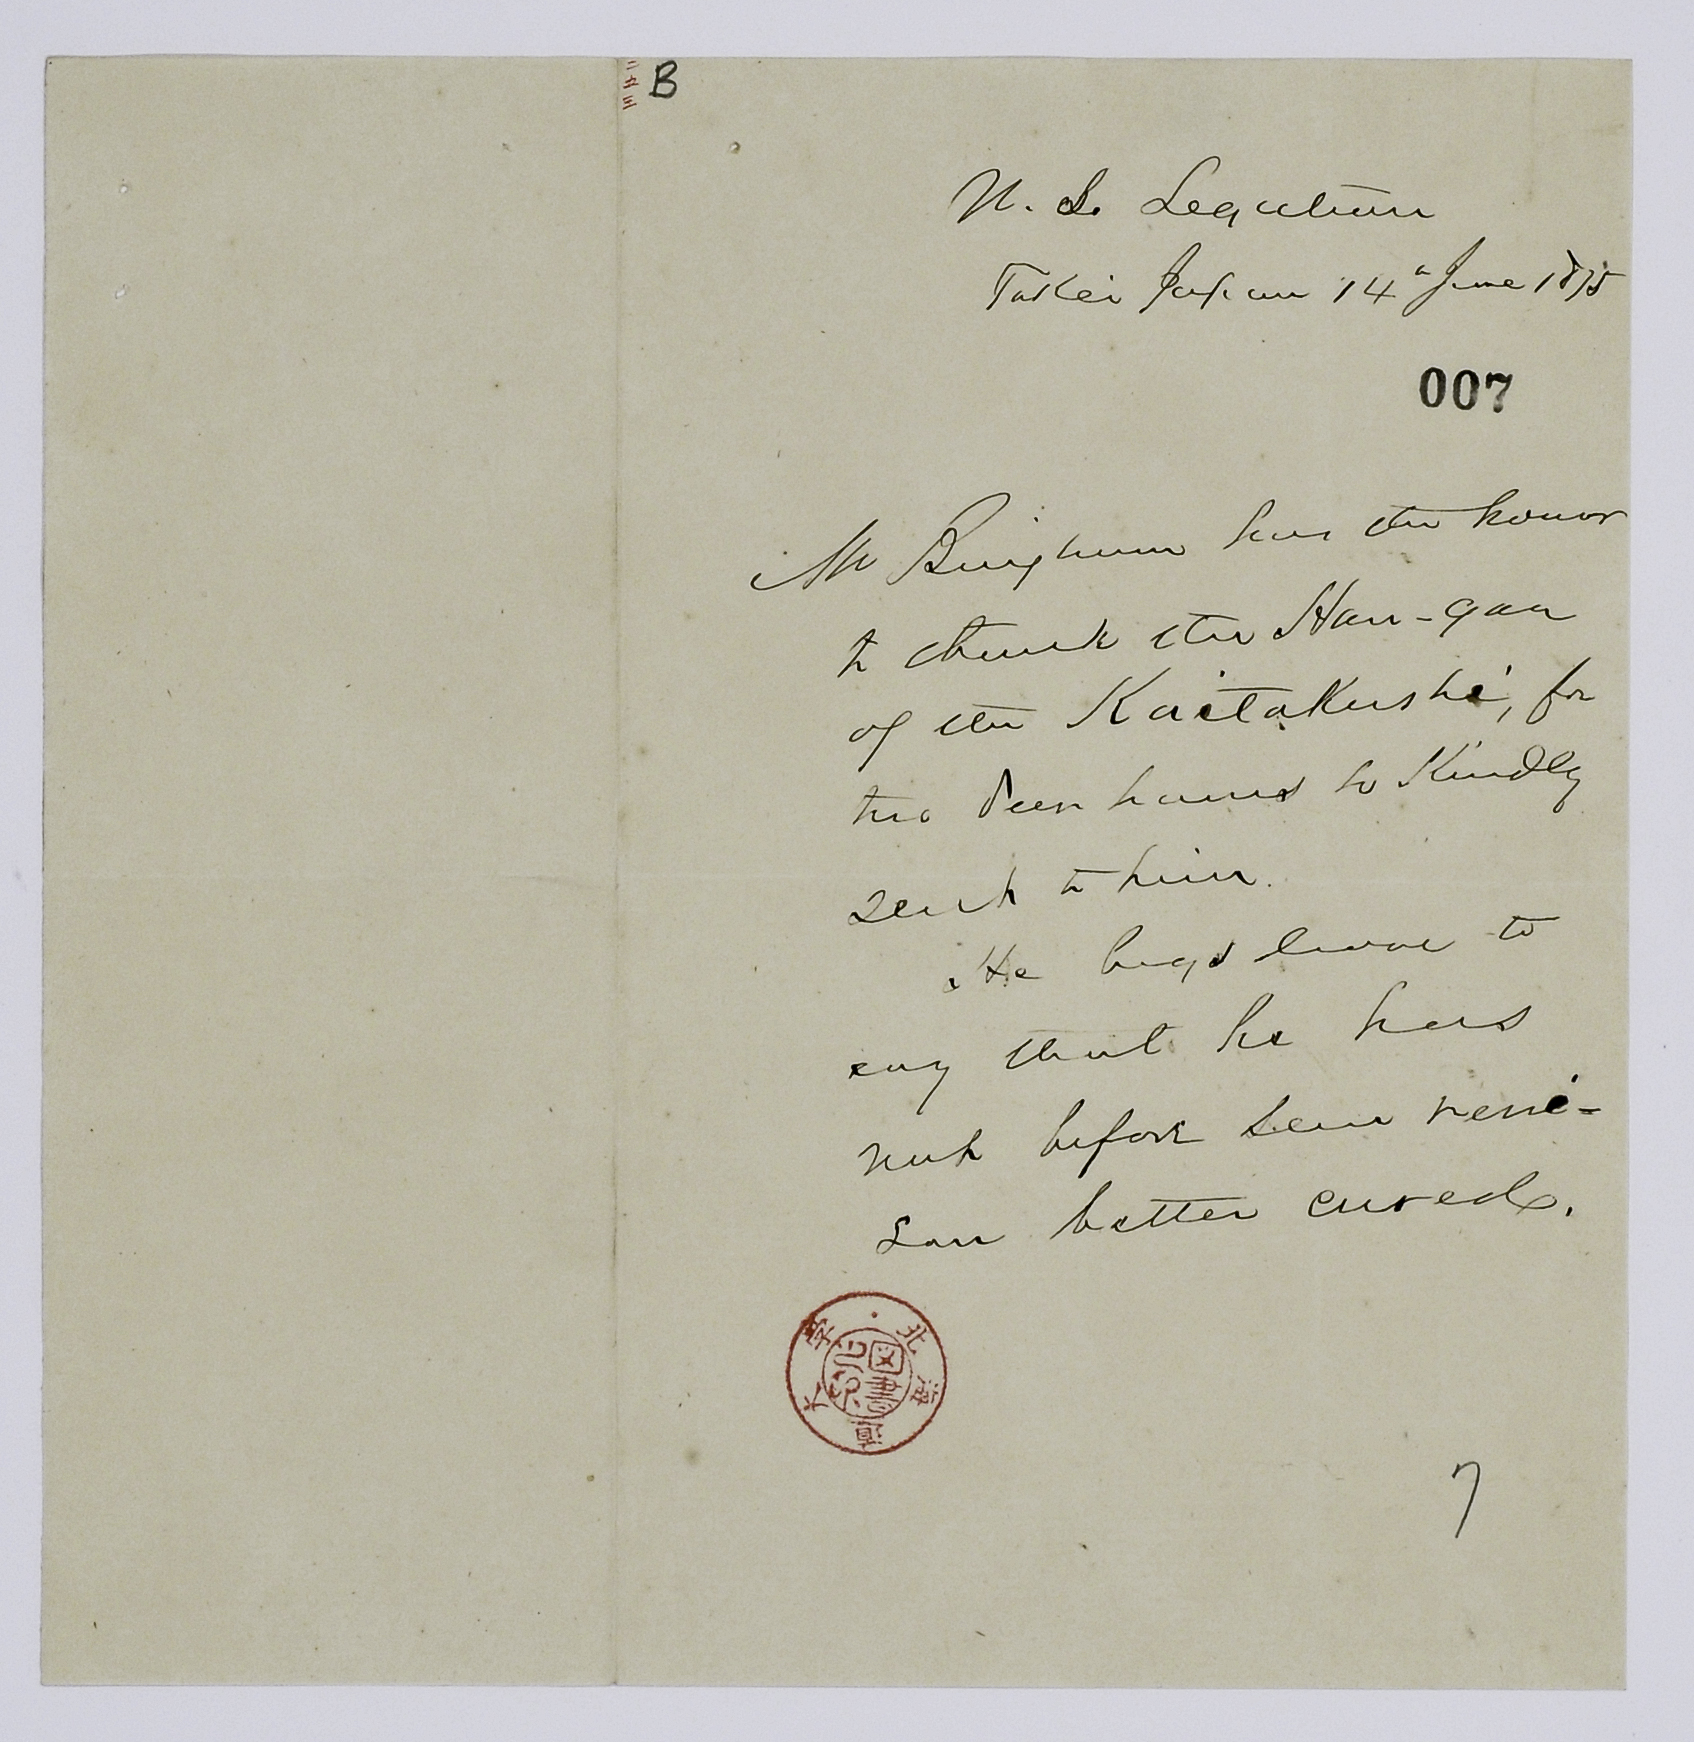 B
U. S. Legation
Tokei Japan 14th June 1875
007
Mr Bingham has the honor
to thank the Han-gan
of the Kaitakushi, for
two deer hams so kindly
sent to him.
He begs leave to
say that he has
not before seen veni-
son better cured.
北海道大学
図書
7